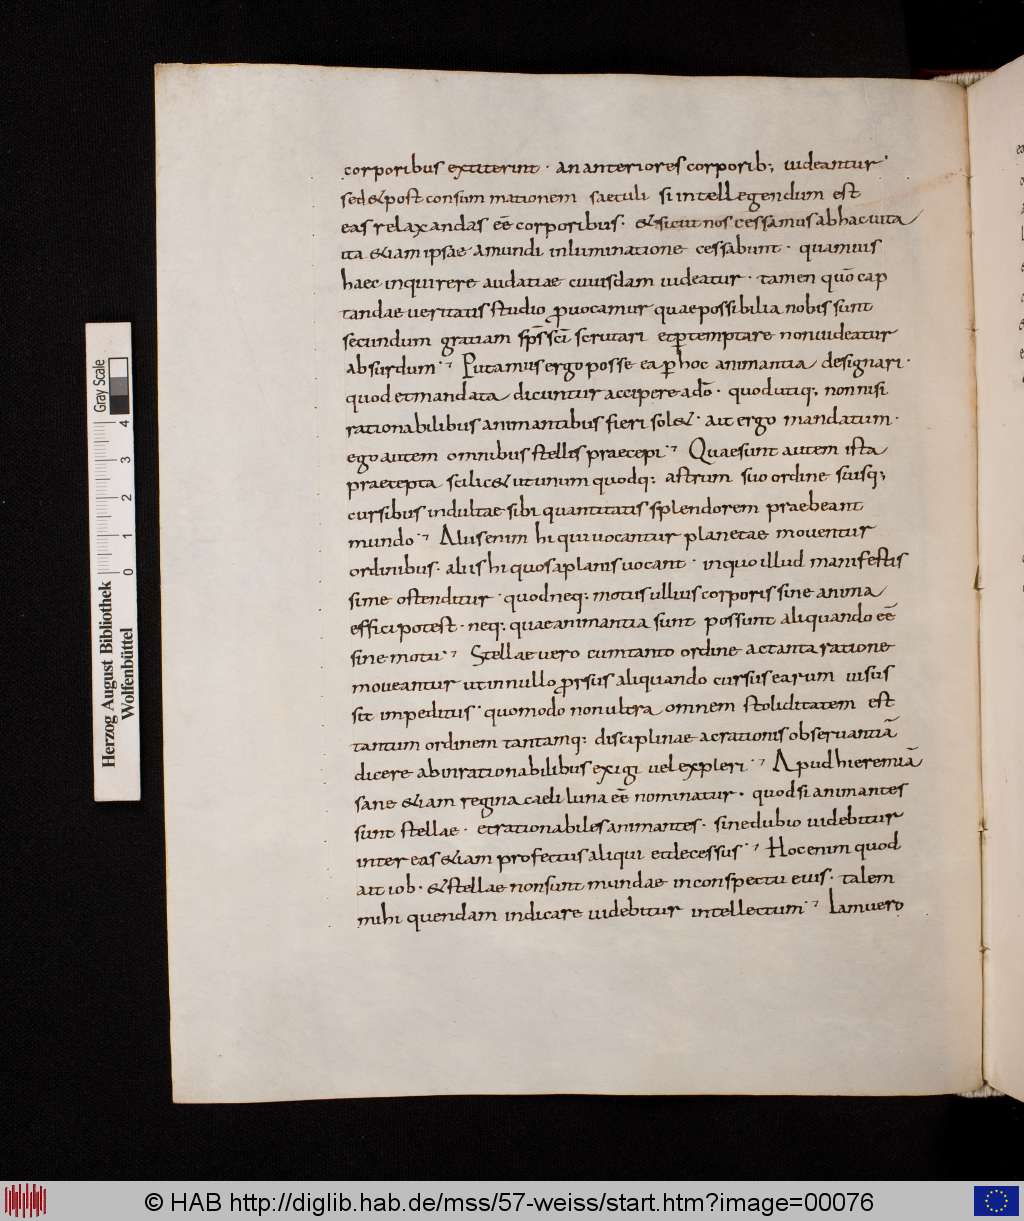 corporibus extiterint · an anteriores corporib; uideantur·
sed & post consummationem saeculi si intellegendum est
eas relaxandas eē corporibus · & sicut nos cessamus ab hac uita
ita & iam ipsae a mundi inluminatione cessabunt · quamuis
haec inquirere audatiae cuiusdam uideatur · tamen quō cap
tandae ueritatis studio ꝓuocamur quae possibilia nobis sunt
secundum gratiam sp̄s sc̄i scrutari et ꝑtemptare non uideatur
absurdum · Putamus ergo posse ea ꝑ hoc animantia designari ·
quod et mandata dicuntur accipere a dō · quod utiq; non nisi
rationabilibus animantibus fieri sol& · ait ergo mandatum ·
ego autem omnibus stellis praecepi · Quae sunt autem ista
praecepta scilic& ut unum quodq; astrum suo ordine suisq;
cursibus indultae sibi quantitatis splendorem praebeant
mundo · Aliis enim hi qui uocantur planetae mouentur
ordinibus · aliis hi quos aplanis uocant · in quo illud manifestis
sime ostenditur · quod neq; motus ullius corporis sine anima
effici potest · neq; quae animantia sunt possunt aliquando eē
sine motu · Stellae uero cum tanto ordine ac tanta ratione
moueantur ut in nullo ꝓrsus aliquando cursus earum uisus
sit impeditus · quomodo non ultra omnem stoliditatem est
tantum ordinem tantamq; disciplinae ac rationis obseruantiā
dicere ab inrationabilibus exigi uel expleri · Apud hieremiā
sane & iam regina caeli luna eē nominatur · quod si animantes
sunt stellae · et rationabiles animantes · sine dubio uidebitur
inter eas & iam profectus aliqui et decessus · Hoc enim quod
ait iob · & stellae non sunt mundae in conspectu eius · talem
mihi quendam indicare uidebitur intellectum · Iam uero
Gray Scale
0 1 2 3 4
Herzog August Bibliothek
Wolfenbüttel
© HAB http://diglib.hab.de/mss/57-weiss/start.htm?image=00076